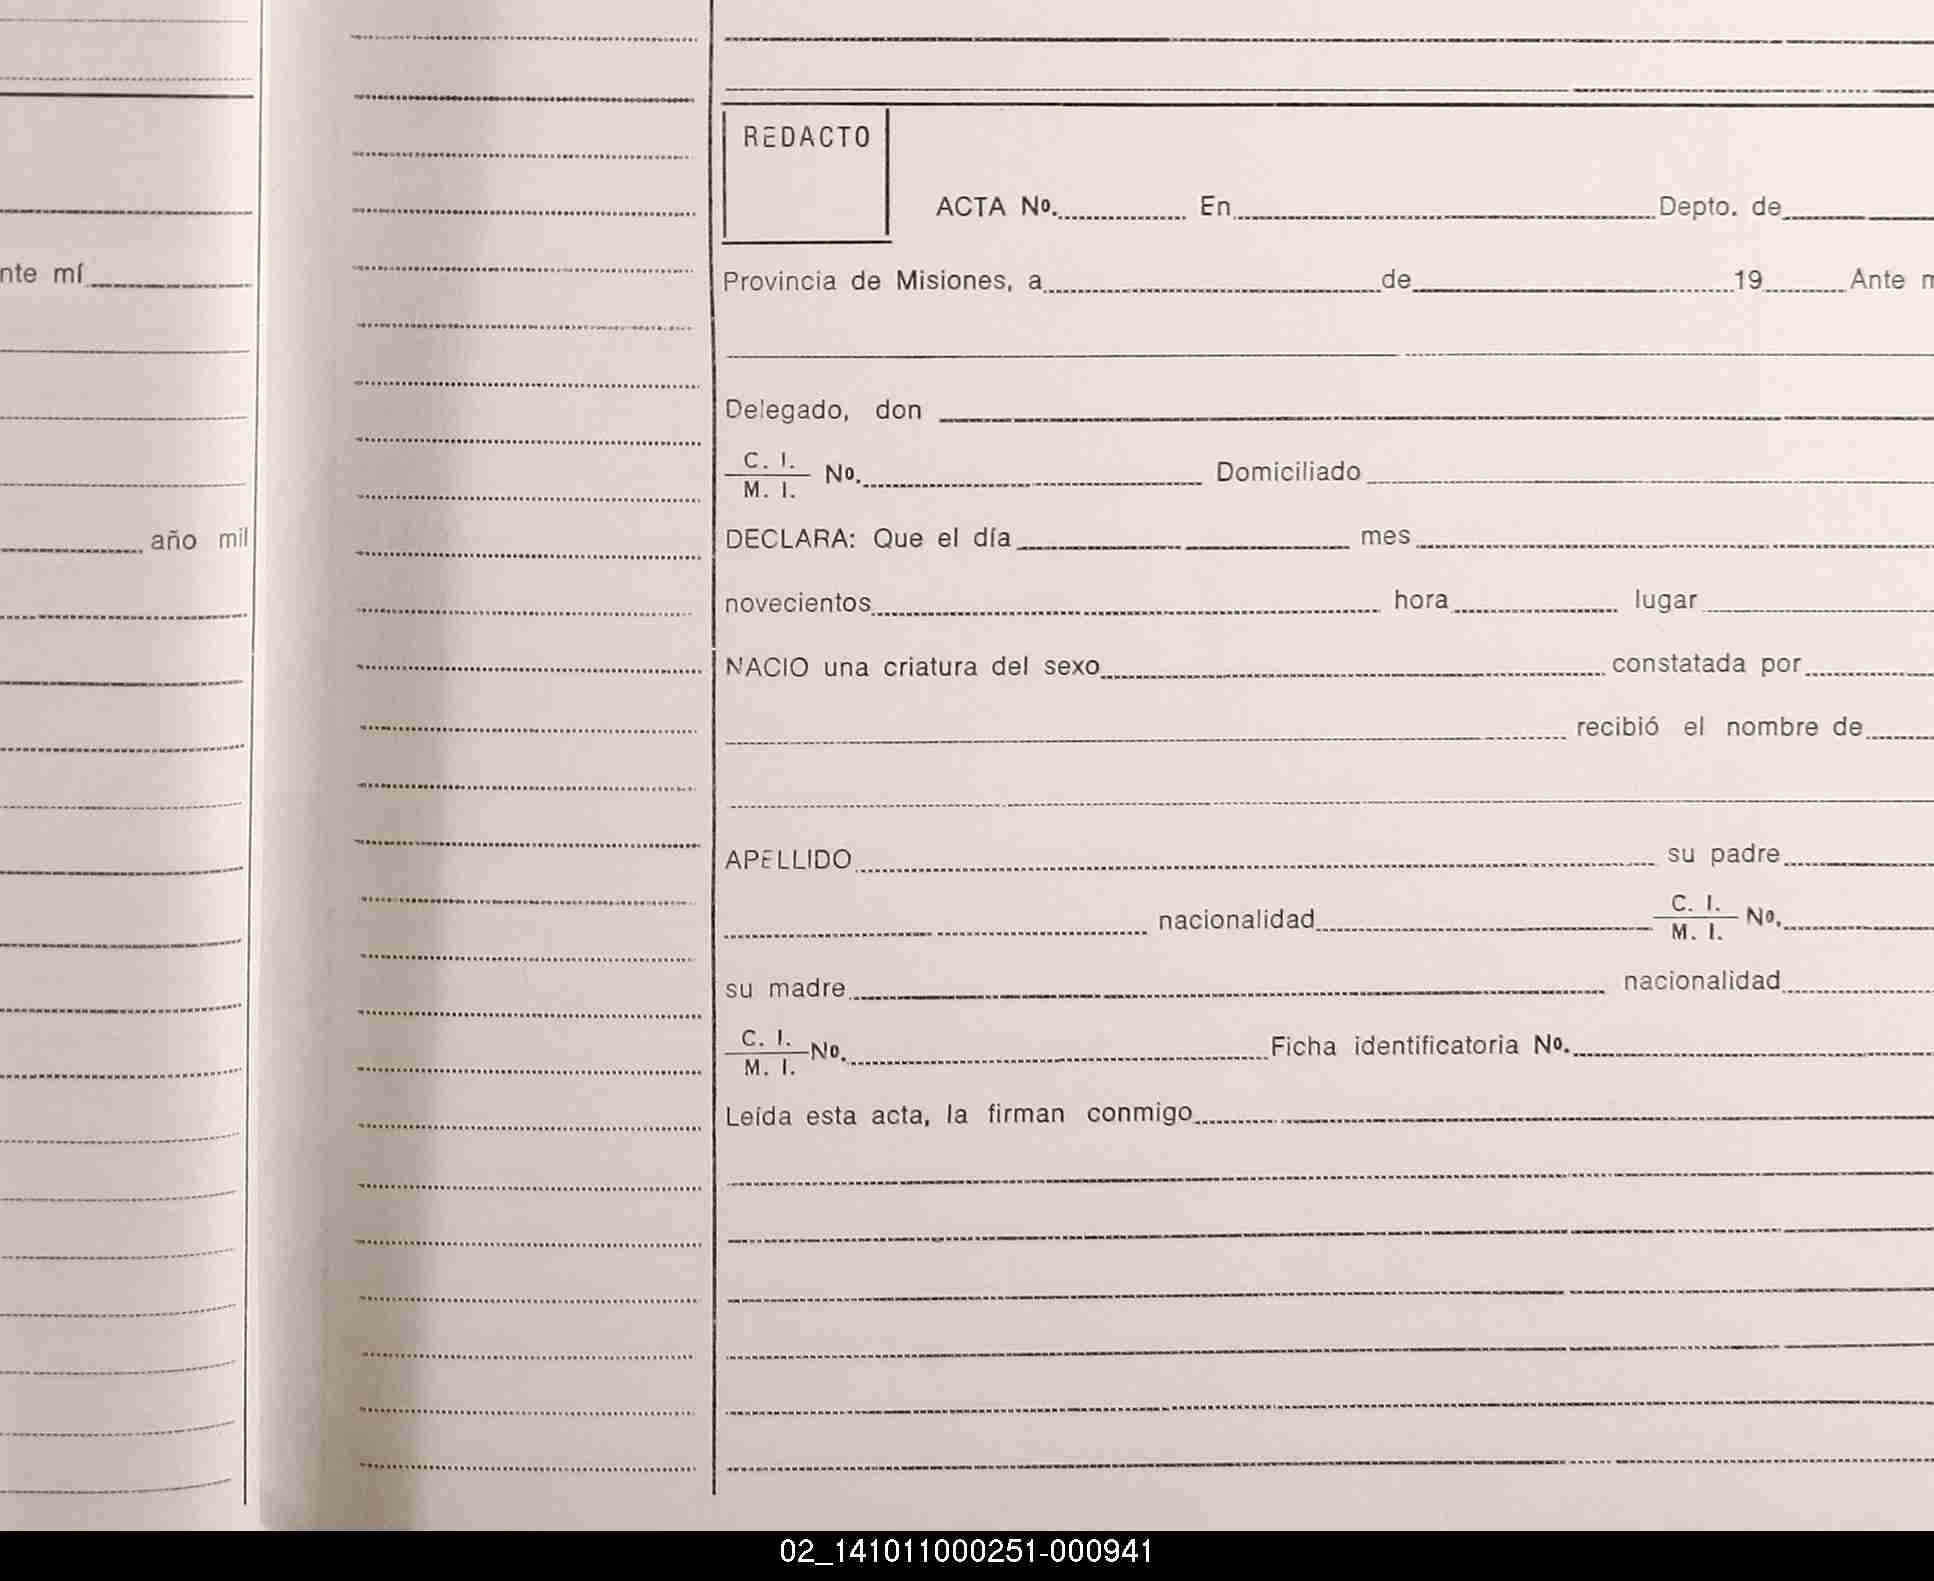 nte mí
año mil
REDACTO
ACTA Nº. En Depto. de
Provincia de Misiones, a de 19 Ante m
Delegado, don
C. I.
M. I. Nº. Domiciliado
DECLARA: Que el día mes
novecientos hora lugar
NACIO una criatura del sexo constatada por
recibió el nombre de
APELLIDO su padre
nacionalidad C. I.
M. I. Nº.
su madre nacionalidad
C. I.
M. I. Nº. Ficha identificatoria Nº.
Leída esta acta, la firman conmigo
02_141011000251-000941